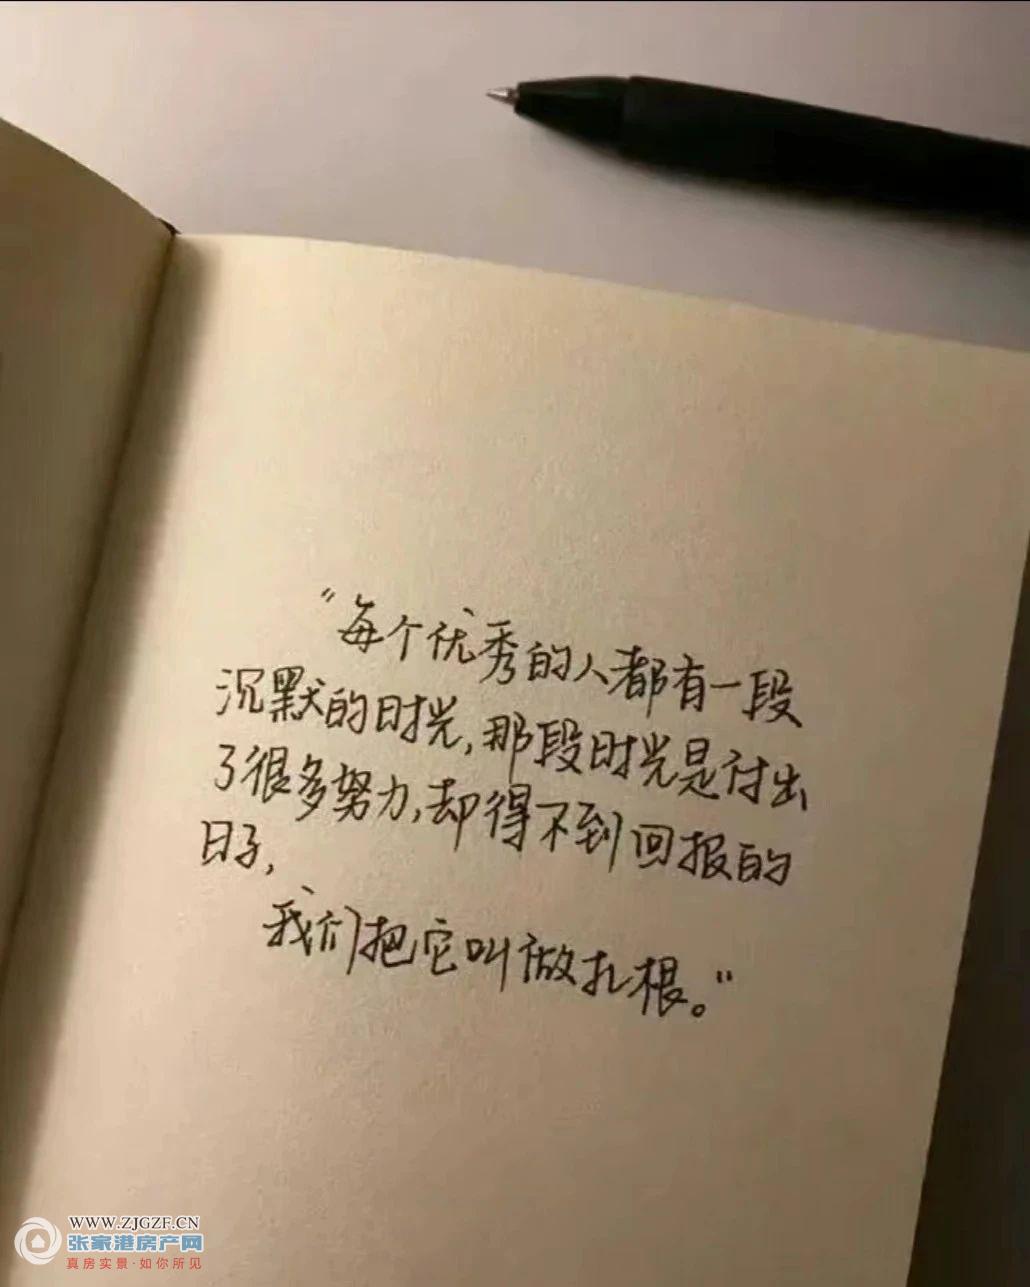 “每个优秀的人都有一段
沉默的时光,那段时光是付出
了很多努力,却得不到回报的
日子,
我们把它叫做扎根。”
WWW.ZJGZF.CN
张家港房产网
真房实景·如你所见